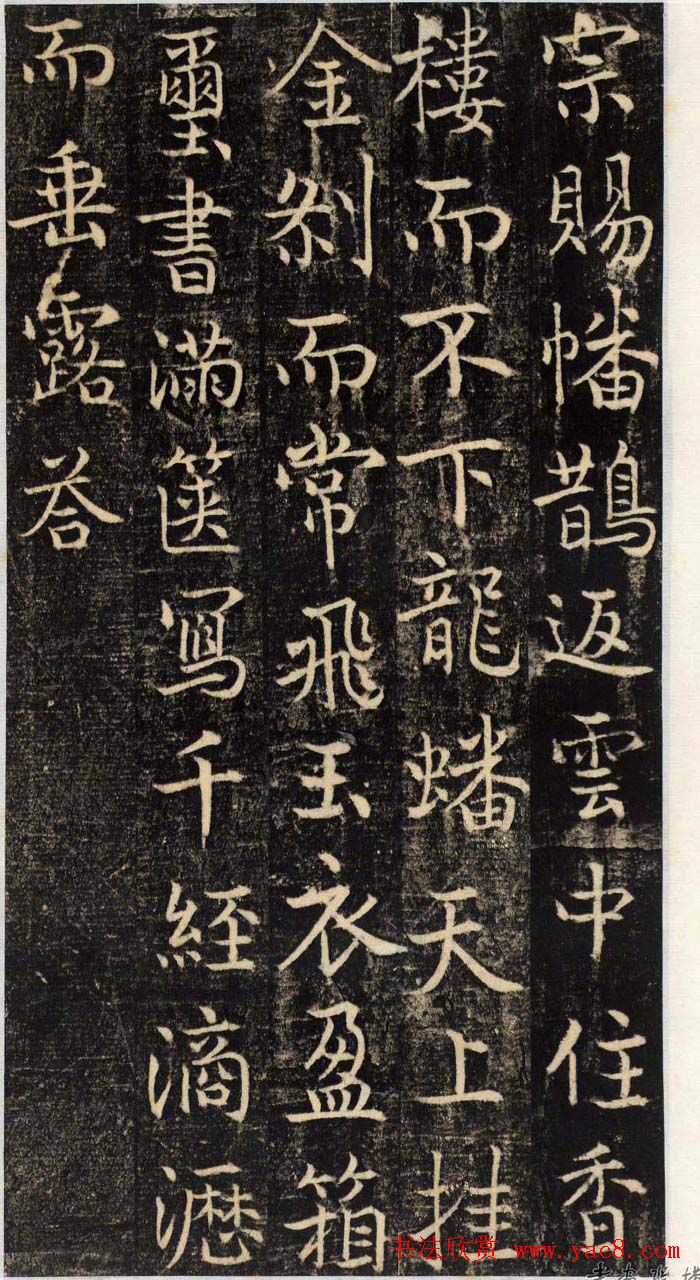 宗賜幡鵲返雲中住香
樓而不下龍蟠天上挂
金刹而常飛玉衣盈箱
璽書滿篋寫千經滴瀝
而垂露荅
书法欣赏 www.yac8.com